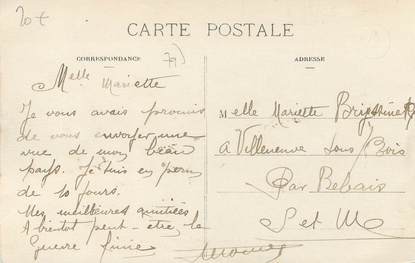 20 €
CARTE POSTALE
CORRESPONDANCE
79)
ADRESSE
Melle Mariette
Je vous avais promis
de vous envoyer une
vue de mon beau
pays. Je suis en perm
de 10 jours.
Mes meilleures amitiés
A bientôt peut-être la
Guerre finie
Melle Mariette
A Villeneuve sous Bois
Par Rebais
S et M